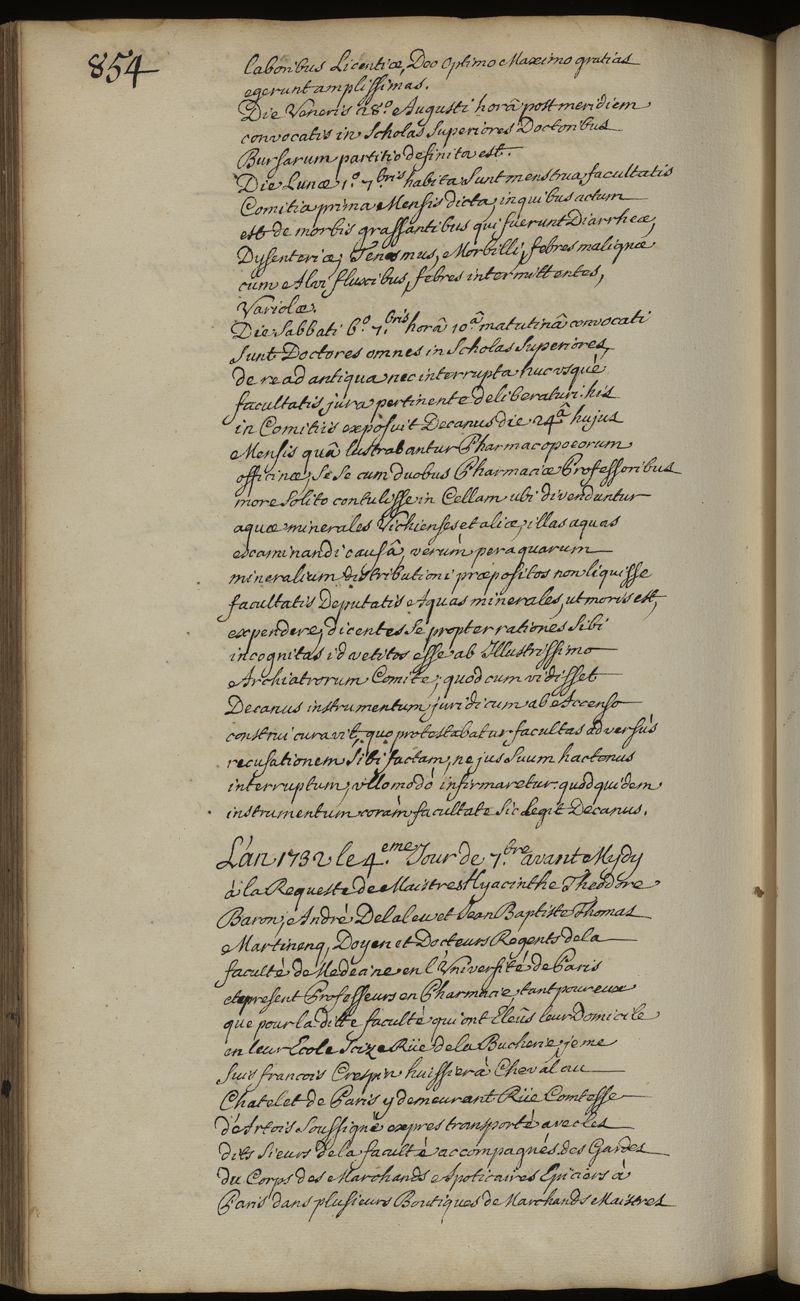 854
laboribus Licentiæ, Deo Optimo Maximo gratias
egerunt amplissimas.
Die Veneris 18.º Augusti horâ post meridiem
convocatis in Scholas Superiores Doctoribus
Bursarum partitio definita est.
Die Lunæ 1.º 7.bris habita sunt menstrua facultatis
Comitia prima Mensis dicta, in quibus actum
est de morbis grassantibus qui fuerunt Diarrheæ,
Dysenteriæ, Tenesmus, Morbilli, febres malignæ
cum Alvi fluxibus, febres intermittentes,
Variolæ.
Die Sabbati 6.º 7.bris horâ 10.â matutinâ convocati
sunt Doctores omnes in Scholas Superiores,
de re ad antiqua nec interrupta hucusquè
facultatis jura pertinente deliberaturi. his
in Comitiis exposuit Decanus die 24.â hujus
Mensis quâ lustrabantur Pharmacopoeorum
officinæ, se se cum duobus Pharmaciæ Professoribus
more solito contulisse in Cellam ubi divenduntur
aquæ minerales Vichienses et aliæ, illas aquas
examinandi causâ, verùm per aquarum
mineralium distributioni præpositos non liquisse
facultatis Deputatis Aquas minerales, ut moris est,
expendere, dicentes se propter rationes sibi
incognitas id vetitos esse ab Illustrissimo
Archiatrorum Comite, quod cum vidisset
Decanus instrumentum juridicum ab Accenso
construi curavit, quo protestabatur facultas adversùs
recusationem sibi factam, ne jus suum hactenus
interruptum, ullo modo infirmaretur. quod quidem
instrumentum coràm facultate sic legit Decanus.
L'an 1732 le 4.eme Jour de 7.bre avant Mydy
à la Requeste de Maistres Hyacinthe Theodore
Baron, André De la leu et Jean Baptiste Thomas
Martinenq, Doyen et Docteurs Regents de la
faculté de Medecine en l'Université de Paris
et present Professeurs en Pharmacie, tant pour eux
que pour la ditte faculté qui ont Eleûs leur Domicile
en leur Ecole Scize Rüe de la Bucherie, je me
suis francois Crespin huissier à Cheval au
Chatelet de Paris y demeurant Rüe Comtesse
d'Artois Soussigné expres transporté avec les
dits Sieurs de la faculté accompagnés des Gardes
du Corps des Marchands Apoticaires Epiciers à
Paris dans plusieurs Boutiques de Marchands Maistres